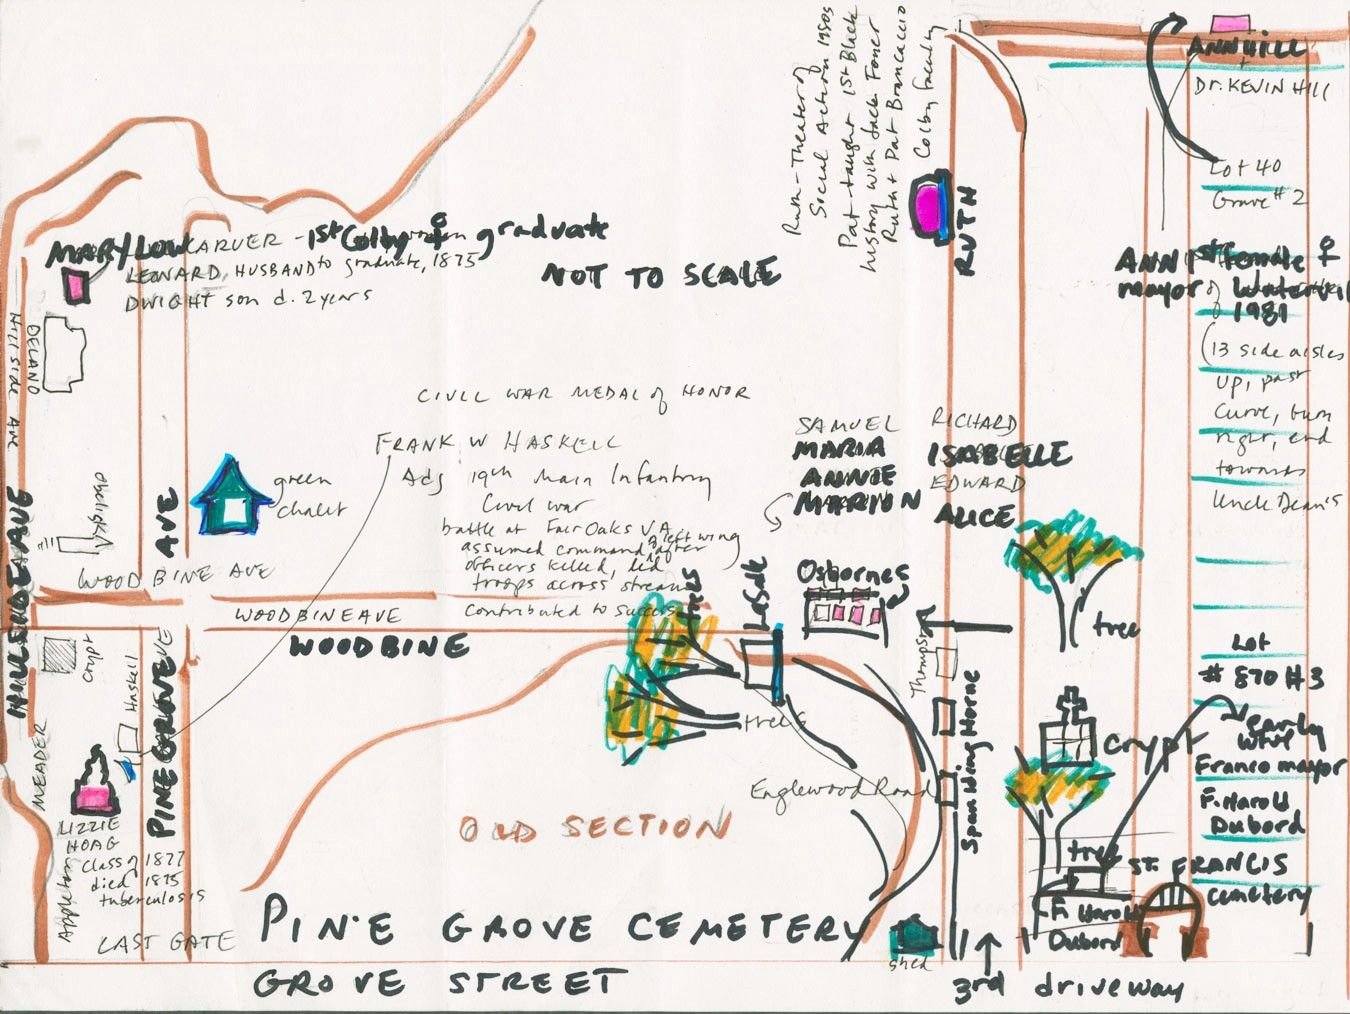 Ruth - Theater of
Social Action 1980s
Pat - taught 1st Black
history with Jack Foner
Ruth + Pat Brancaccio
Colby faculty
RUTH
ANN HILL
+
Dr. KEVIN HILL
Lot 40
Grave #2
ANN 1st female ♀
mayor of Waterville
1981
(13 side aisles
up, past
curve, turn
right, end
towards
Uncle Dean's
MARY LOW CARVER - 1st Colby ♀ graduate
LEONARD, HUSBAND to graduate, 1875
DWIGHT son d. 2 years
NOT TO SCALE
DELANO
Hillside Ave
HILLSIDE AVE
obelisk
PINE GROVE AVE
green
chalet
WOODBINE AVE
WOODBINE AVE
WOODBINE
CIVIL WAR MEDAL of HONOR
FRANK W HASKELL
Adj 19th Main Infantry
Civil war
battle at Fair Oaks VA
assumed command of left wing after
officers killed, led
troops across stream
contributed to success
SAMUEL
MARIA
ANNIE
MARION
RICHARD
ISABELLE
EDWARD
ALICE
Osbornes
trees
LaSalle
trees
tree
Thompson
Spaulding Horne
Englewood Road
crypt
tree
Haskell
MEADER
LIZZIE
HOAG
Class of 1877
died 1875
tuberculosis
Appleton
LAST GATE
OLD SECTION
PINE GROVE CEMETERY
GROVE STREET
shed
3rd driveway
F. Harold
Dubord
ST. FRANCIS
cemetery
Lot
# 870 #3
early
WVL
Franco mayor
F. Harold
Dubord